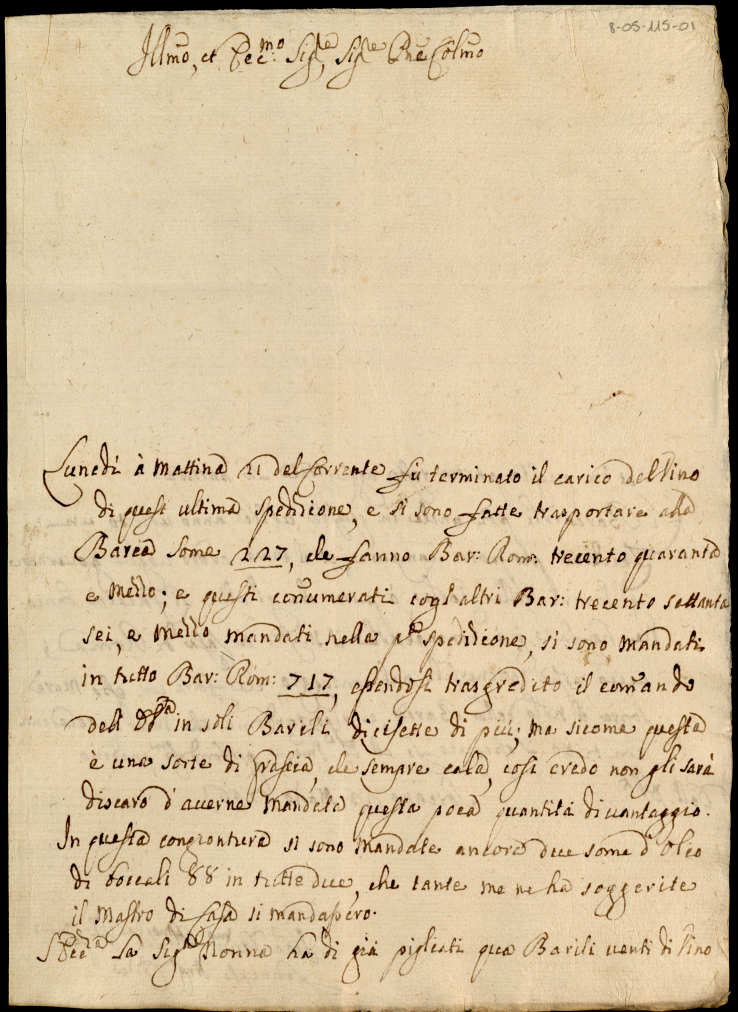 8-05-115-01
Illmo, et Ecc:mo Sigre, Sigre Pne Colmo
Lunedì à Mattina 21 del Corrente fù terminato il carico del Vino
di quest ultima spedizione, e si sono fatte trasportare alla
Barca some 227, che fanno Bar: Rom: trecento quaranta
e mezzo; e questi connumerati cogl'altri Bar: trecento settanta
sei, e mezzo mandati nella pa spedizione, si sono mandati
in tutto Bar: Rom: 717, essendosi trasgredito il comando
dell' in soli Barili dicisette di più; ma sicome questa
è una sorte di grascia, che sempre cala, così credo non gli sarà
discaro d'averne mandata questa poca quantità di vantaggio.
In questa congiontura si sono mandate ancora due some d'Oleo
di boccali 88 in tutte due, che tante me ne ha suggerite
il Mastro di Casa si mandassero.
S. Ecc:za La Sigra Nonna ha di già pigliati qua Barili venti di Vino